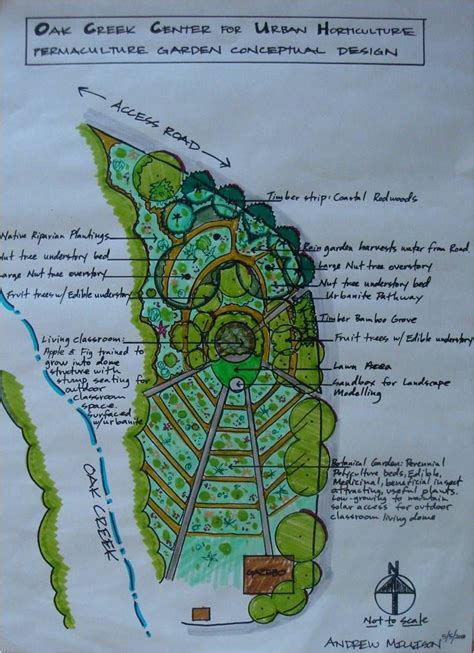 Oak Creek Center for Urban Horticulture
Permaculture Garden Conceptual Design
Access Road
Timber strip: Coastal Redwoods
Native Riparian Plantings
Nut tree understory bed
Large Nut tree overstory
Fruit trees w/ Edible understory
Rain garden harvests water from Road
Large Nut tree overstory
Nut tree understory bed
Urbanite Pathway
Timber Bamboo Grove
Fruit trees w/ Edible understory
Lawn Area
Sandbox for Landscape
Modelling
Living classroom:
Apple & Fig trained to
grow into dome
structure with
stump seating for
outdoor
classroom
space.
surfaced
w/urbanite
Botanical Garden: Perennial
Polyculture beds, Edible,
Medicinal, beneficial insect
attracting, useful plants.
Low-growing to maintain
solar access for outdoor
classroom living dome
Oak Creek
Gazebo
N
Not to scale
Andrew Millison